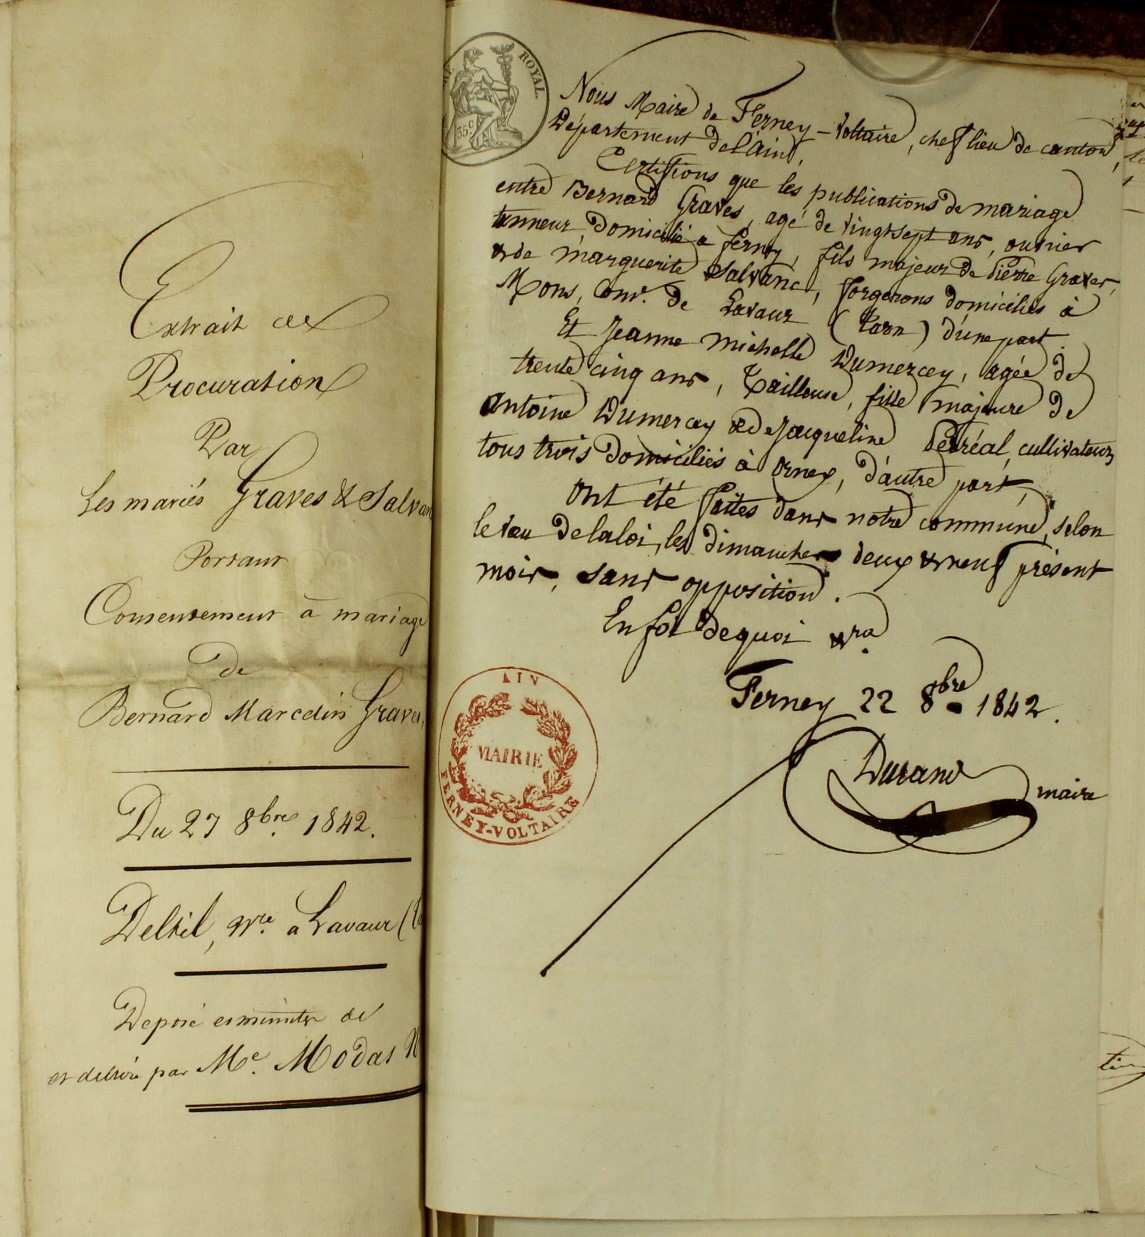 Extrait de
Procuration
Par
Les mariés Graves & Salvan
Portant
Consentement à mariage
de
Bernard Marcelin Graves,
Du 27 8bre 1842.
Delhil, Nre. a Lavaur (
Deposé et
et délivré par Me. Modas N
ROYAL.
35c
Nous Maire de Ferney-Voltaire, chef lieu de canton,
Département de l'ain,
Certifions que les publications de mariage
entre Bernard Graves, agé de vingt sept ans, ouvrier
tanneur domicilié a ferney, fils majeur de Pierre Graves,
& de marguerite Salvanc, forgerons domiciliés à
Mons, Con. de Lavaur (tarn) d'une part.
Et Jeanne michelle Dumercey, agée de
trente cinq ans, tailleuse, fille majeure de
antoine Dumercey & de Jacqueline Peréal, cultivateurs
tous trois domiciliés à ornex, d'autre part,
Ont été faites dans notre commune, selon
le vœu de la loi, les dimanches deux & neuf présent
mois, sans opposition.
En foi de quoi &ra.
Ferney 22 8bre 1842.
Durand maire
AIN
MAIRIE
FERNEY-VOLTAIRE